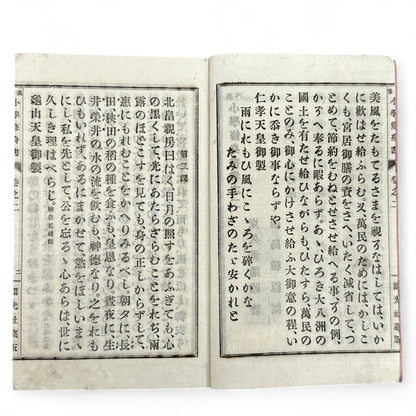 小學修身書 卷之二 國光社藏版
美風をたもてるさまを視そなはしては、いか
に歡ばせ給ふらむ。又萬民のためには、かしこ
くも宮居御膳の資をさへ、いたく减省して、つ
とめて、節約をむねとせさせ給へる事〻の例、
かぞへ奉るに暇あらず。あゝ、ひろき大八洲の
國土を有たせ給ひながらも、ひたすら、萬民の
ことのみ御心にかけさせ給ふ大御意の程、い
かに忝き御事ならずや。
仁孝天皇御製
雨にれもひ風にこゝろを碎くかな
たみの手わざのたゞ安かれと
第三課
北畠親房曰はく、日月の照すをあふぎても、心
の黑くして、あたらざらむことをれぢ、雨
露のほどこすを見ても、身の正しからずして、
惠にもれむことを、かへりみるべし。朝夕に長
田、狹田の稻の種を食ふも皇恩なり、晝夜に、生
井、榮井の水の流を飮むも神德なり。之をれも
ひもいれず、あるにまかせて、慾をほしいまゝ
にし、私を先として、公を忘るゝ心あらば、世に
久しき理はべらじ。神皇正統記
龜山天皇御製
小學修身書 卷之二 二 國光社藏版